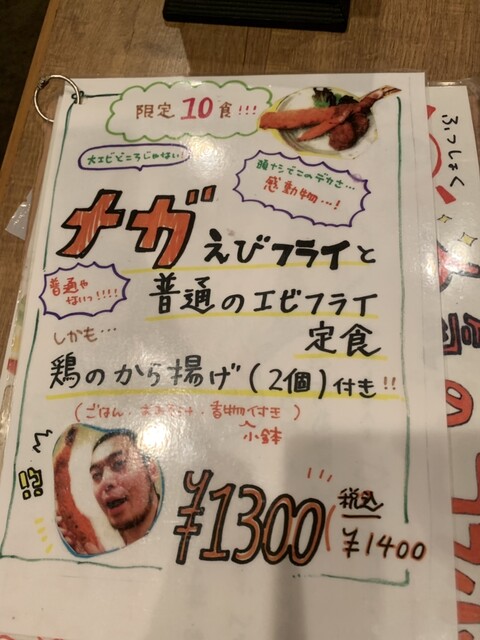 限定10食!!!
大エビどころじゃない
頭ナシでこのデカさ…
感動物…!
メガえびフライと
普通や
ないっ!!!!
普通のエビフライ
定食
しかも…
鶏のから揚げ(2個)付き!!
(ごはん・ ・香物付き)
小鉢
¥1300
(税込
¥1400
ふっしょく